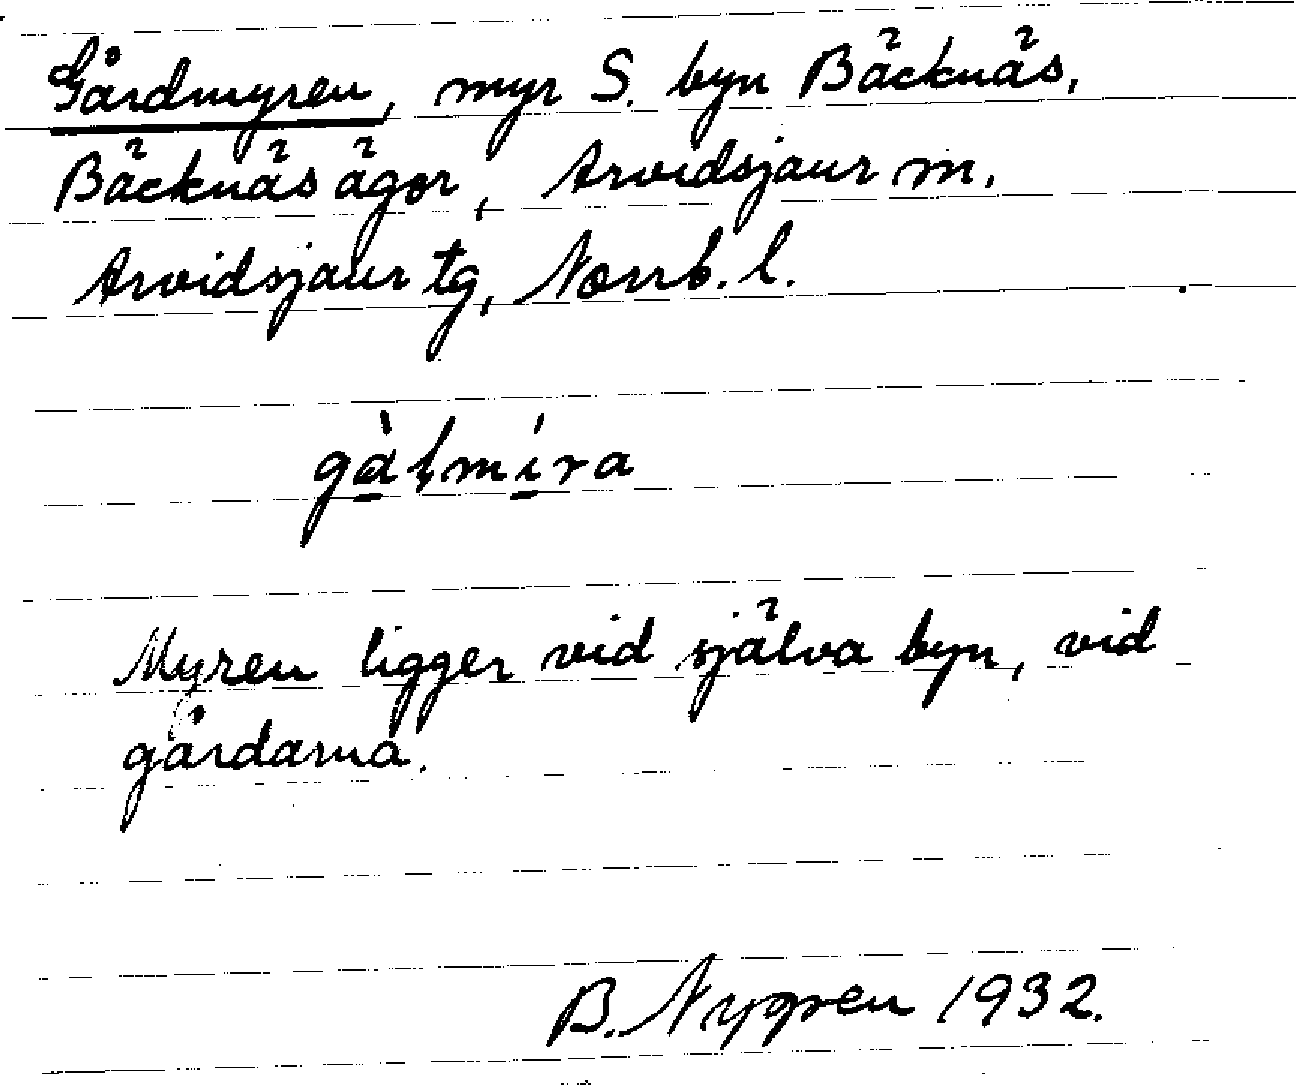 Gårdmyren, myr S. byn Bäcknäs,
Bäcknäs ägor, Arvidsjaur m.
Arvidsjaur tg, Norrb. l.
gàḷmíra
Myren ligger vid själva byn, vid
gårdarna.
B. Nygren 1932.